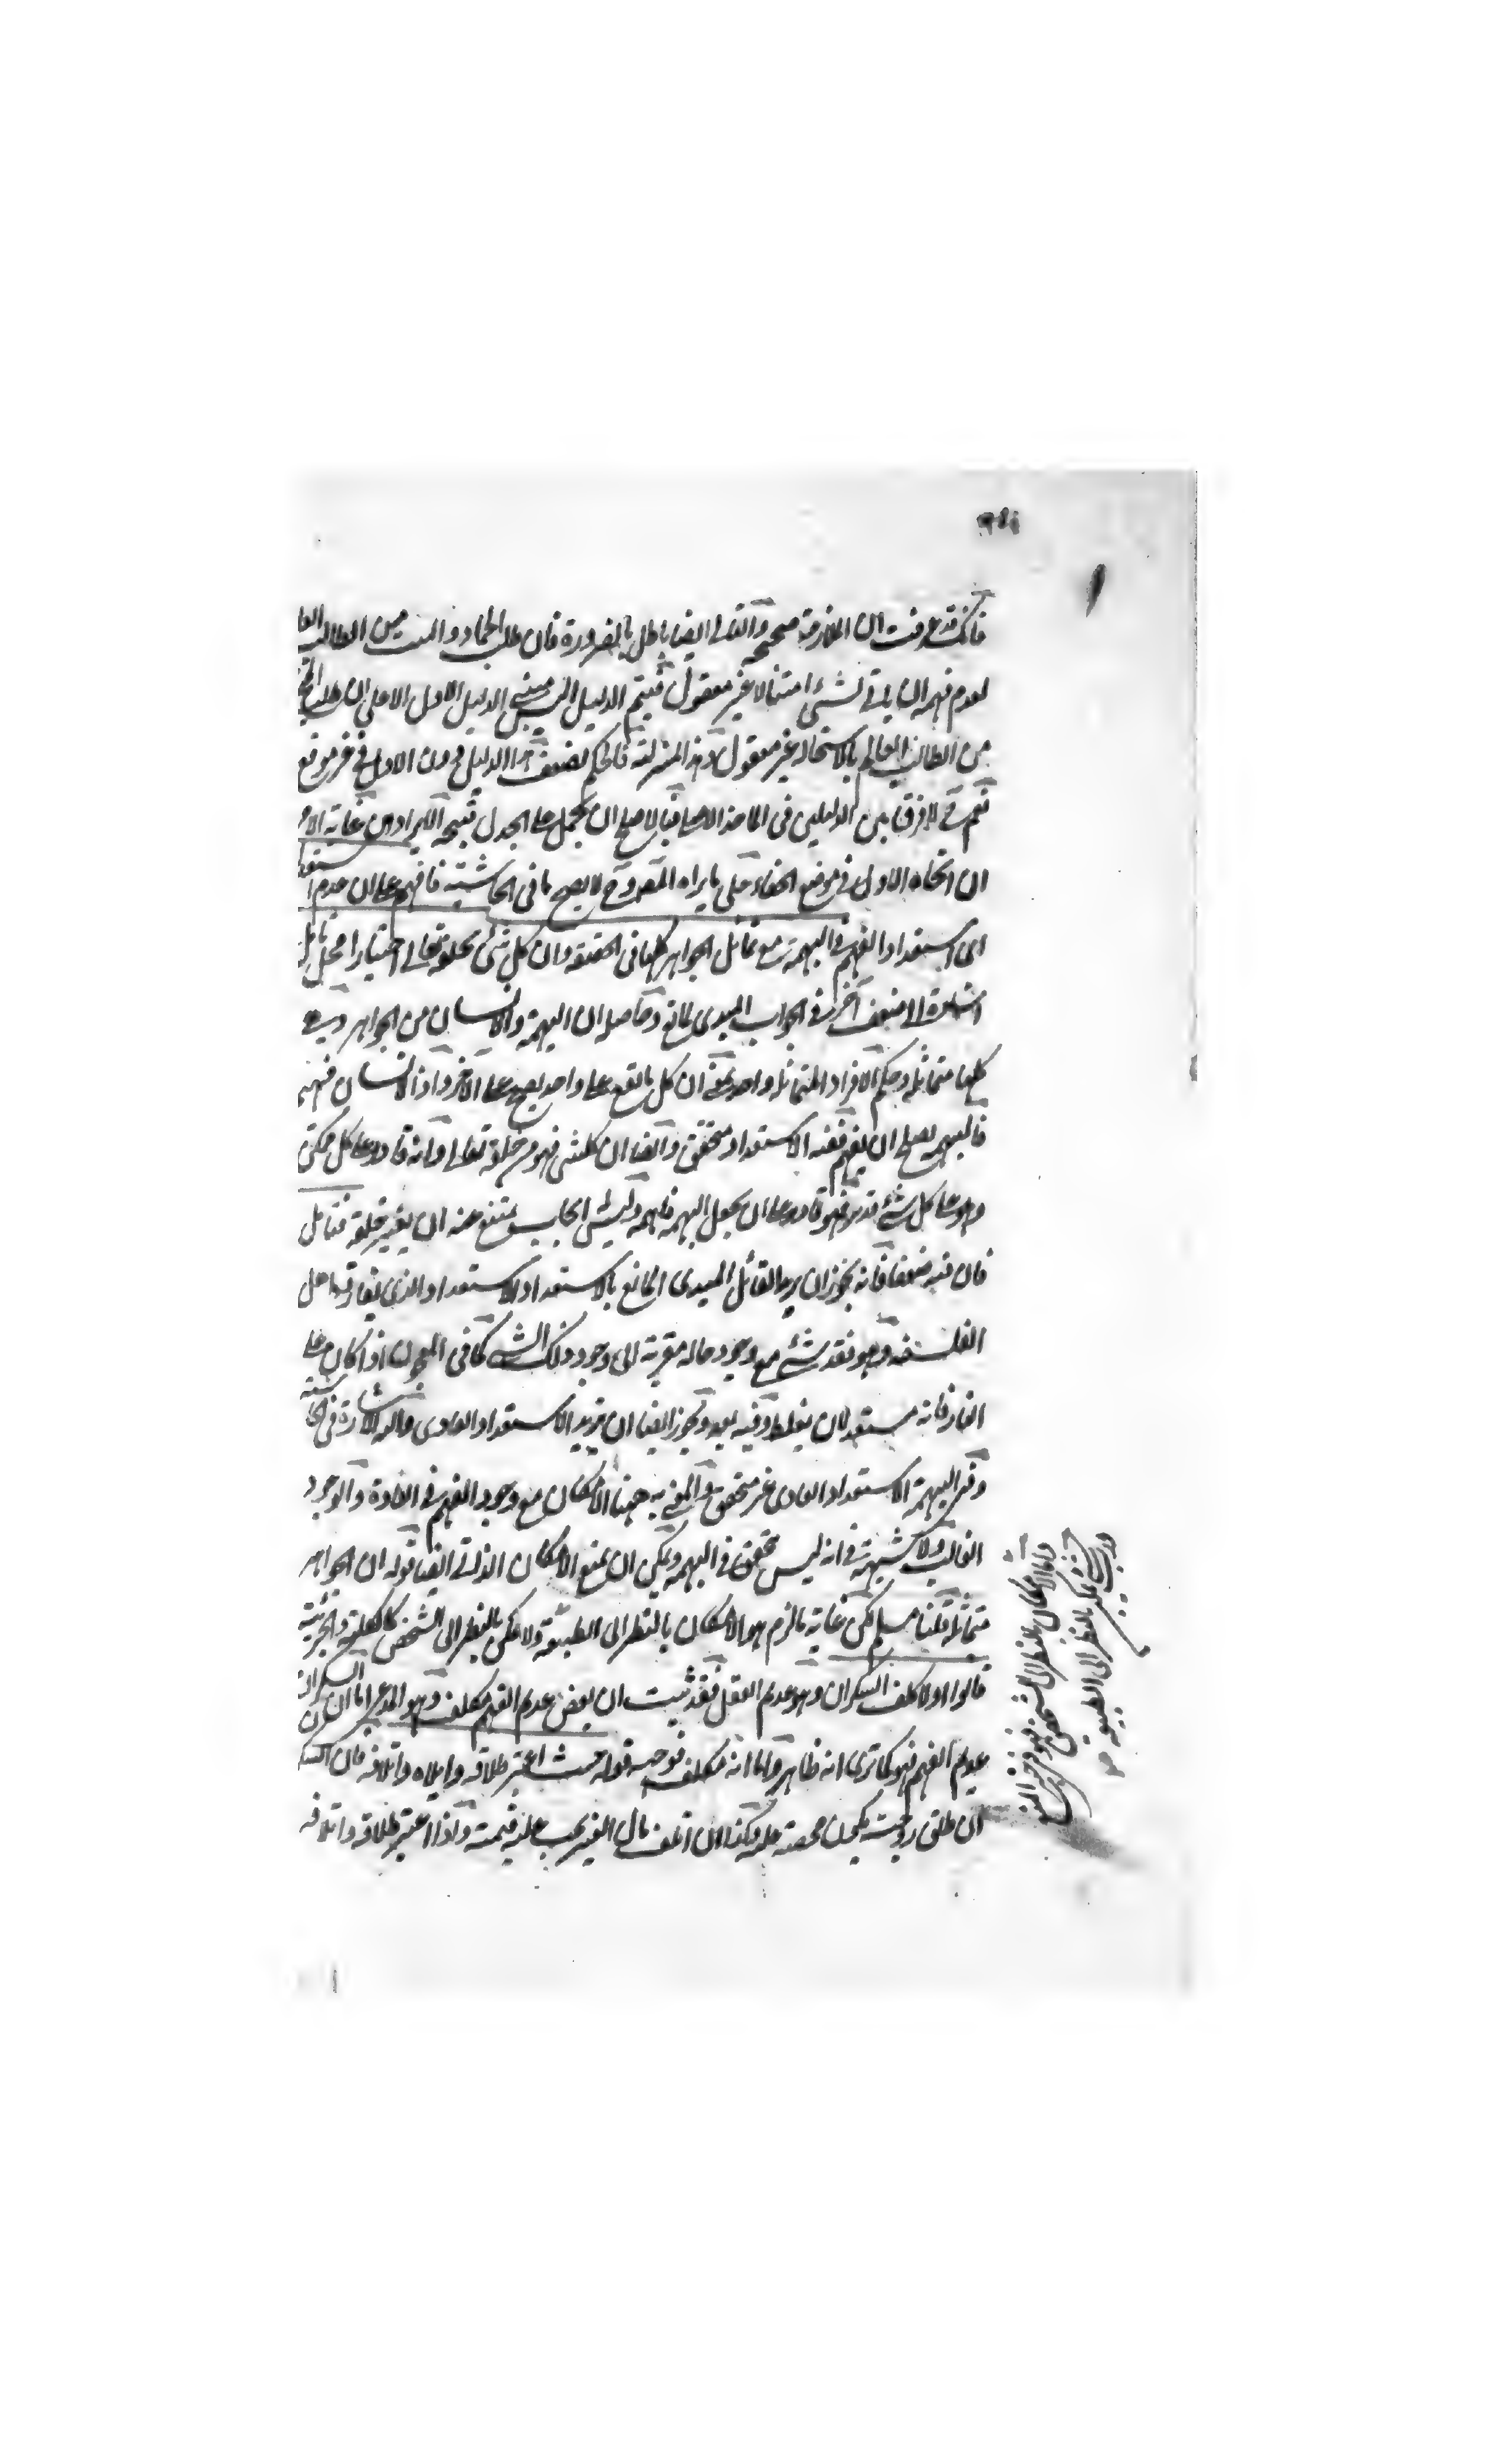 فانك قد عرفت ان الملازمة صحيحة والتالى ايضا باطل بالضرورة فان طلب الجماد والميت من الطالب العا
لعدم فهمه ان ياتى لشئ امتثالا غير معقول فيتم الدليل الدليل الاول الا على ان طلب
من الطالب العالم بالاستحالة غير معقول وهذا المنزلة فالحكم بضعف هذا الدليل دون الاول فى غير موقع
نعم لا فرق بين الدليلين فى الماخذ الا ان يحمل على الجدل الايراد من غاية الامر
ان اتجاه الاول فى موضع الخفاء على ما يراه المص لا يصح ما فى الحاشية فافهم على ان عدم استعداد
اى استعداد الفهم فى البهيمة مع تماثل الجواهر كلها فى الحقيقة وان كل شئ بخلقه تعالى اختيارا محل تامل
اشارة الى ضعف آخر فى الجواب المبدى للمانع وحاصله ان البهيمة والانسان من الجواهر وهى
كلها متماثلة وحكم الافراد المتماثلة واحد بمعنى ان كل ما يقع على واحد يصح على الاخر واذ الانسان فهيم
فالبهيمة يصلح ان يفهم ففيه الاستعداد متحقق وايضا ان كل شئ فهو من خلقه تعالى وانه قادر على كل ممكن
وهو على كل شئ قدير فهو قادر على ان يجعل البهيمة فاهمة وليس ايجاب يمتنع عنه ان يغير خلقه فتامل
فان فيه ضعفا فانه يجوز ان يريد القائل المبدى المانع بالاستعداد الاستعداد الذى اهل
الفلسفة وهو فقد شئ مع وجود حالة مقربة الى وجود ذلك الشئ كما فى المعجون اذا كان على
النار فانه مستعد لان يغلظ وفيه بعد ويجوز ايضا ان يريد الاستعداد العادى واليه الاشارة فى الحاشية
وفى البهيمة الاستعداد العادى غير متحقق والمعنى به ههنا الامكان مع وجود الفهم فى العادة والوجود
الغالب ولا شبهة فى انه ليس بمتحقق فى البهيمة ويمكن ان يمنع الامكان الذاتى ايضا قوله ان الجواهر
متماثلة قلنا مسلم لكن غاية ما لزم هو الامكان بالنظر الى الطبيعة ولا يمكن بالنظر الى الشخص كالكلية والجزئية
قالوا اولا كلف السكران وهو عديم العقل فقد ثبت ان بعض عديم الفهم مكلف وهو المدعى اما ان السكران
عديم الفهم فهو كما ترى انه ظاهر واما انه مكلف فوجهه قوله حيث اعتبر طلاقه وايلاءه واتلافه فان السكران
ان طلق زوجته وكذا ان اتلف مال الغير يجب عليه قيمته واذا اعتبر طلاقه واتلافه
واما الامكان بالنظر الى الشخص فهو
بالنظر الى الطبيعة